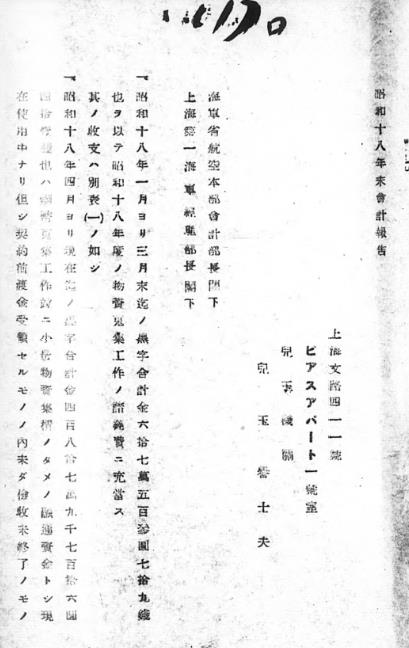 昭和十八年末會計報告
上海文路四一一號
ピアスアパート一號室
兒玉機關
兒玉譽士夫
海軍省航空本部會計部長閣下
上海第一海軍經理部長閣下
一、昭和十八年一月ヨリ三月末迄ノ黒字合計金六拾七萬五百參圓七拾九錢
也ヲ以テ昭和十八年度ノ物資蒐集工作ノ諸經費ニ充當ス
其ノ收支ハ別表(一)ノ如シ
一、昭和十八年四月ヨリ現在迄ノ黒字合計金四百八拾七萬九千七百拾六圓
四拾 錢也ハ 蒐集工作 ニ小 物資集積ノタメノ融通資金トシ現
在使用中ナリ但シ契約前渡金受領セルモノノ內未ダ檢收未終了ノモノ